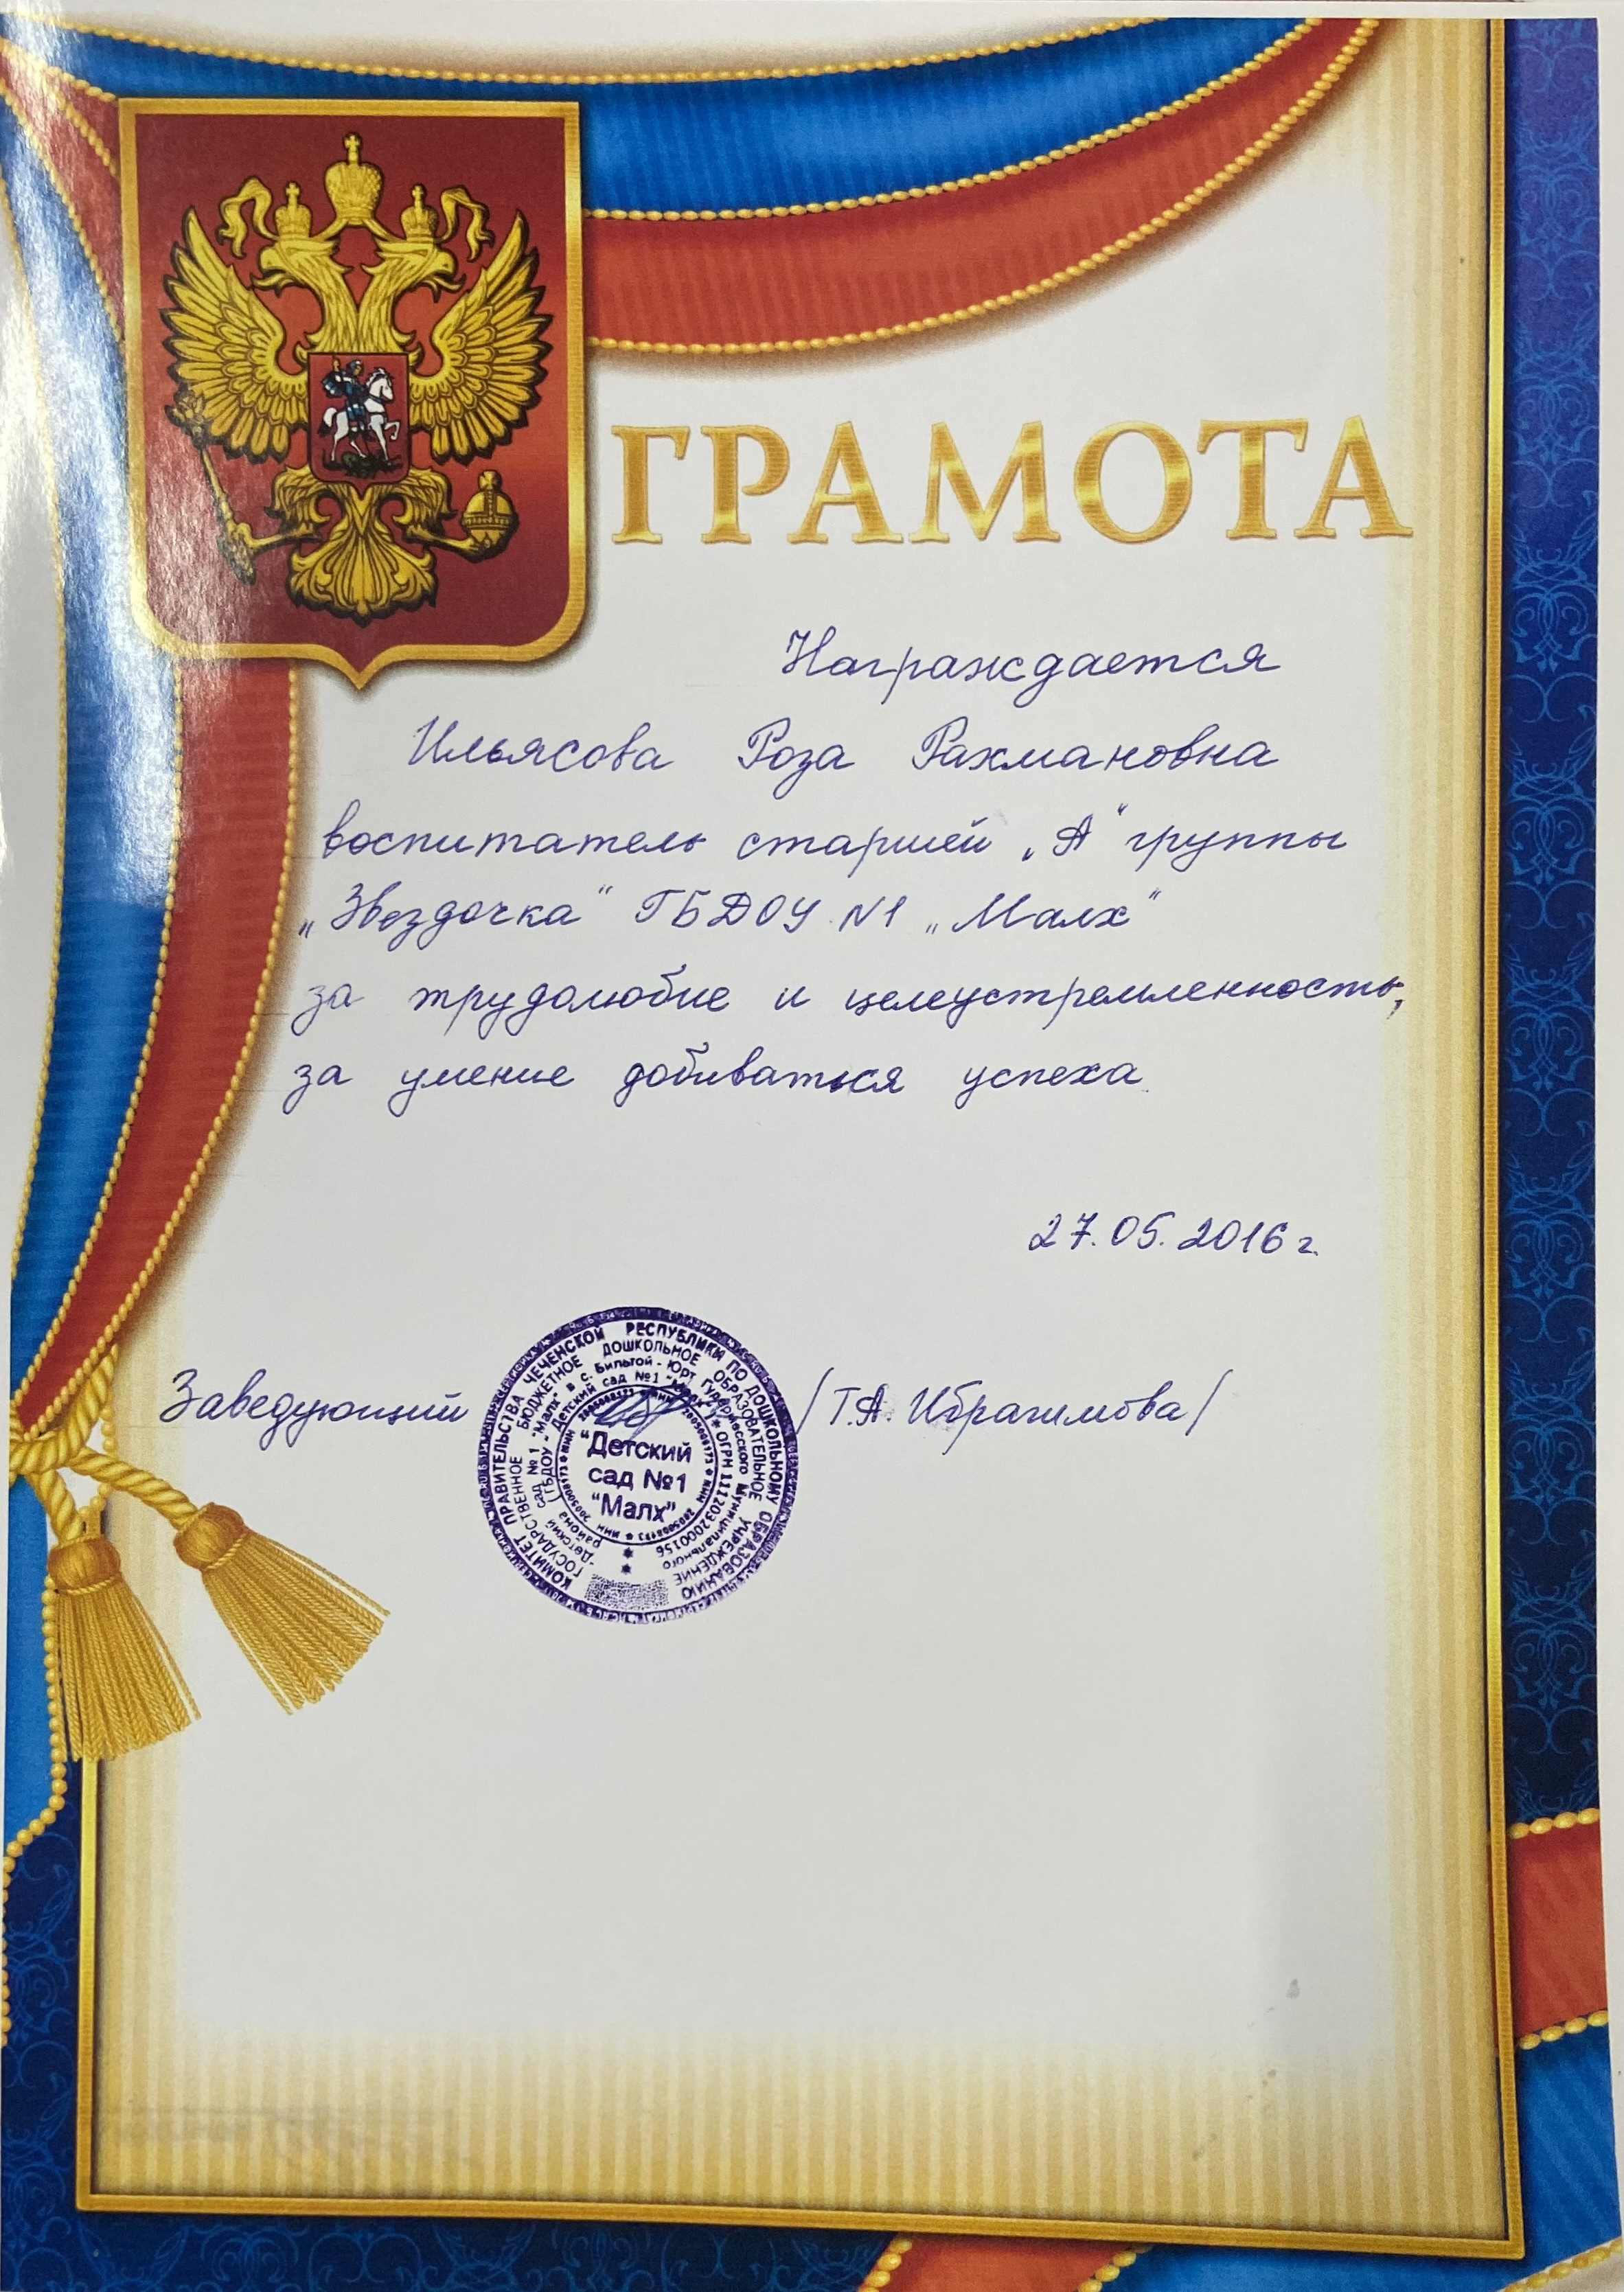 ГРАМОТА
Награждается
Ильясова Роза Рахмановна
воспитатель старшей „А" группы
„Звездочка" ГБДОУ №1 „Малх"
за трудолюбие и целеустремленность,
за умение добиваться успеха.
27.05.2016 г.
Заведующий /Т.А. Ибрагимова/
КОМИТЕТ ПРАВИТЕЛЬСТВА ЧЕЧЕНСКОЙ РЕСПУБЛИКИ ПО ДОШКОЛЬНОМУ ОБРАЗОВАНИЮ
ГОСУДАРСТВЕННОЕ БЮДЖЕТНОЕ ДОШКОЛЬНОЕ ОБРАЗОВАТЕЛЬНОЕ УЧРЕЖДЕНИЕ
"Детский сад №1 "Малх" в с. Бильтой-Юрт Гудермесского муниципального
района (ГБДОУ "Детский сад №1 "Малх") * ОГРН 1112032000156
"Детский
сад №1
"Малх"